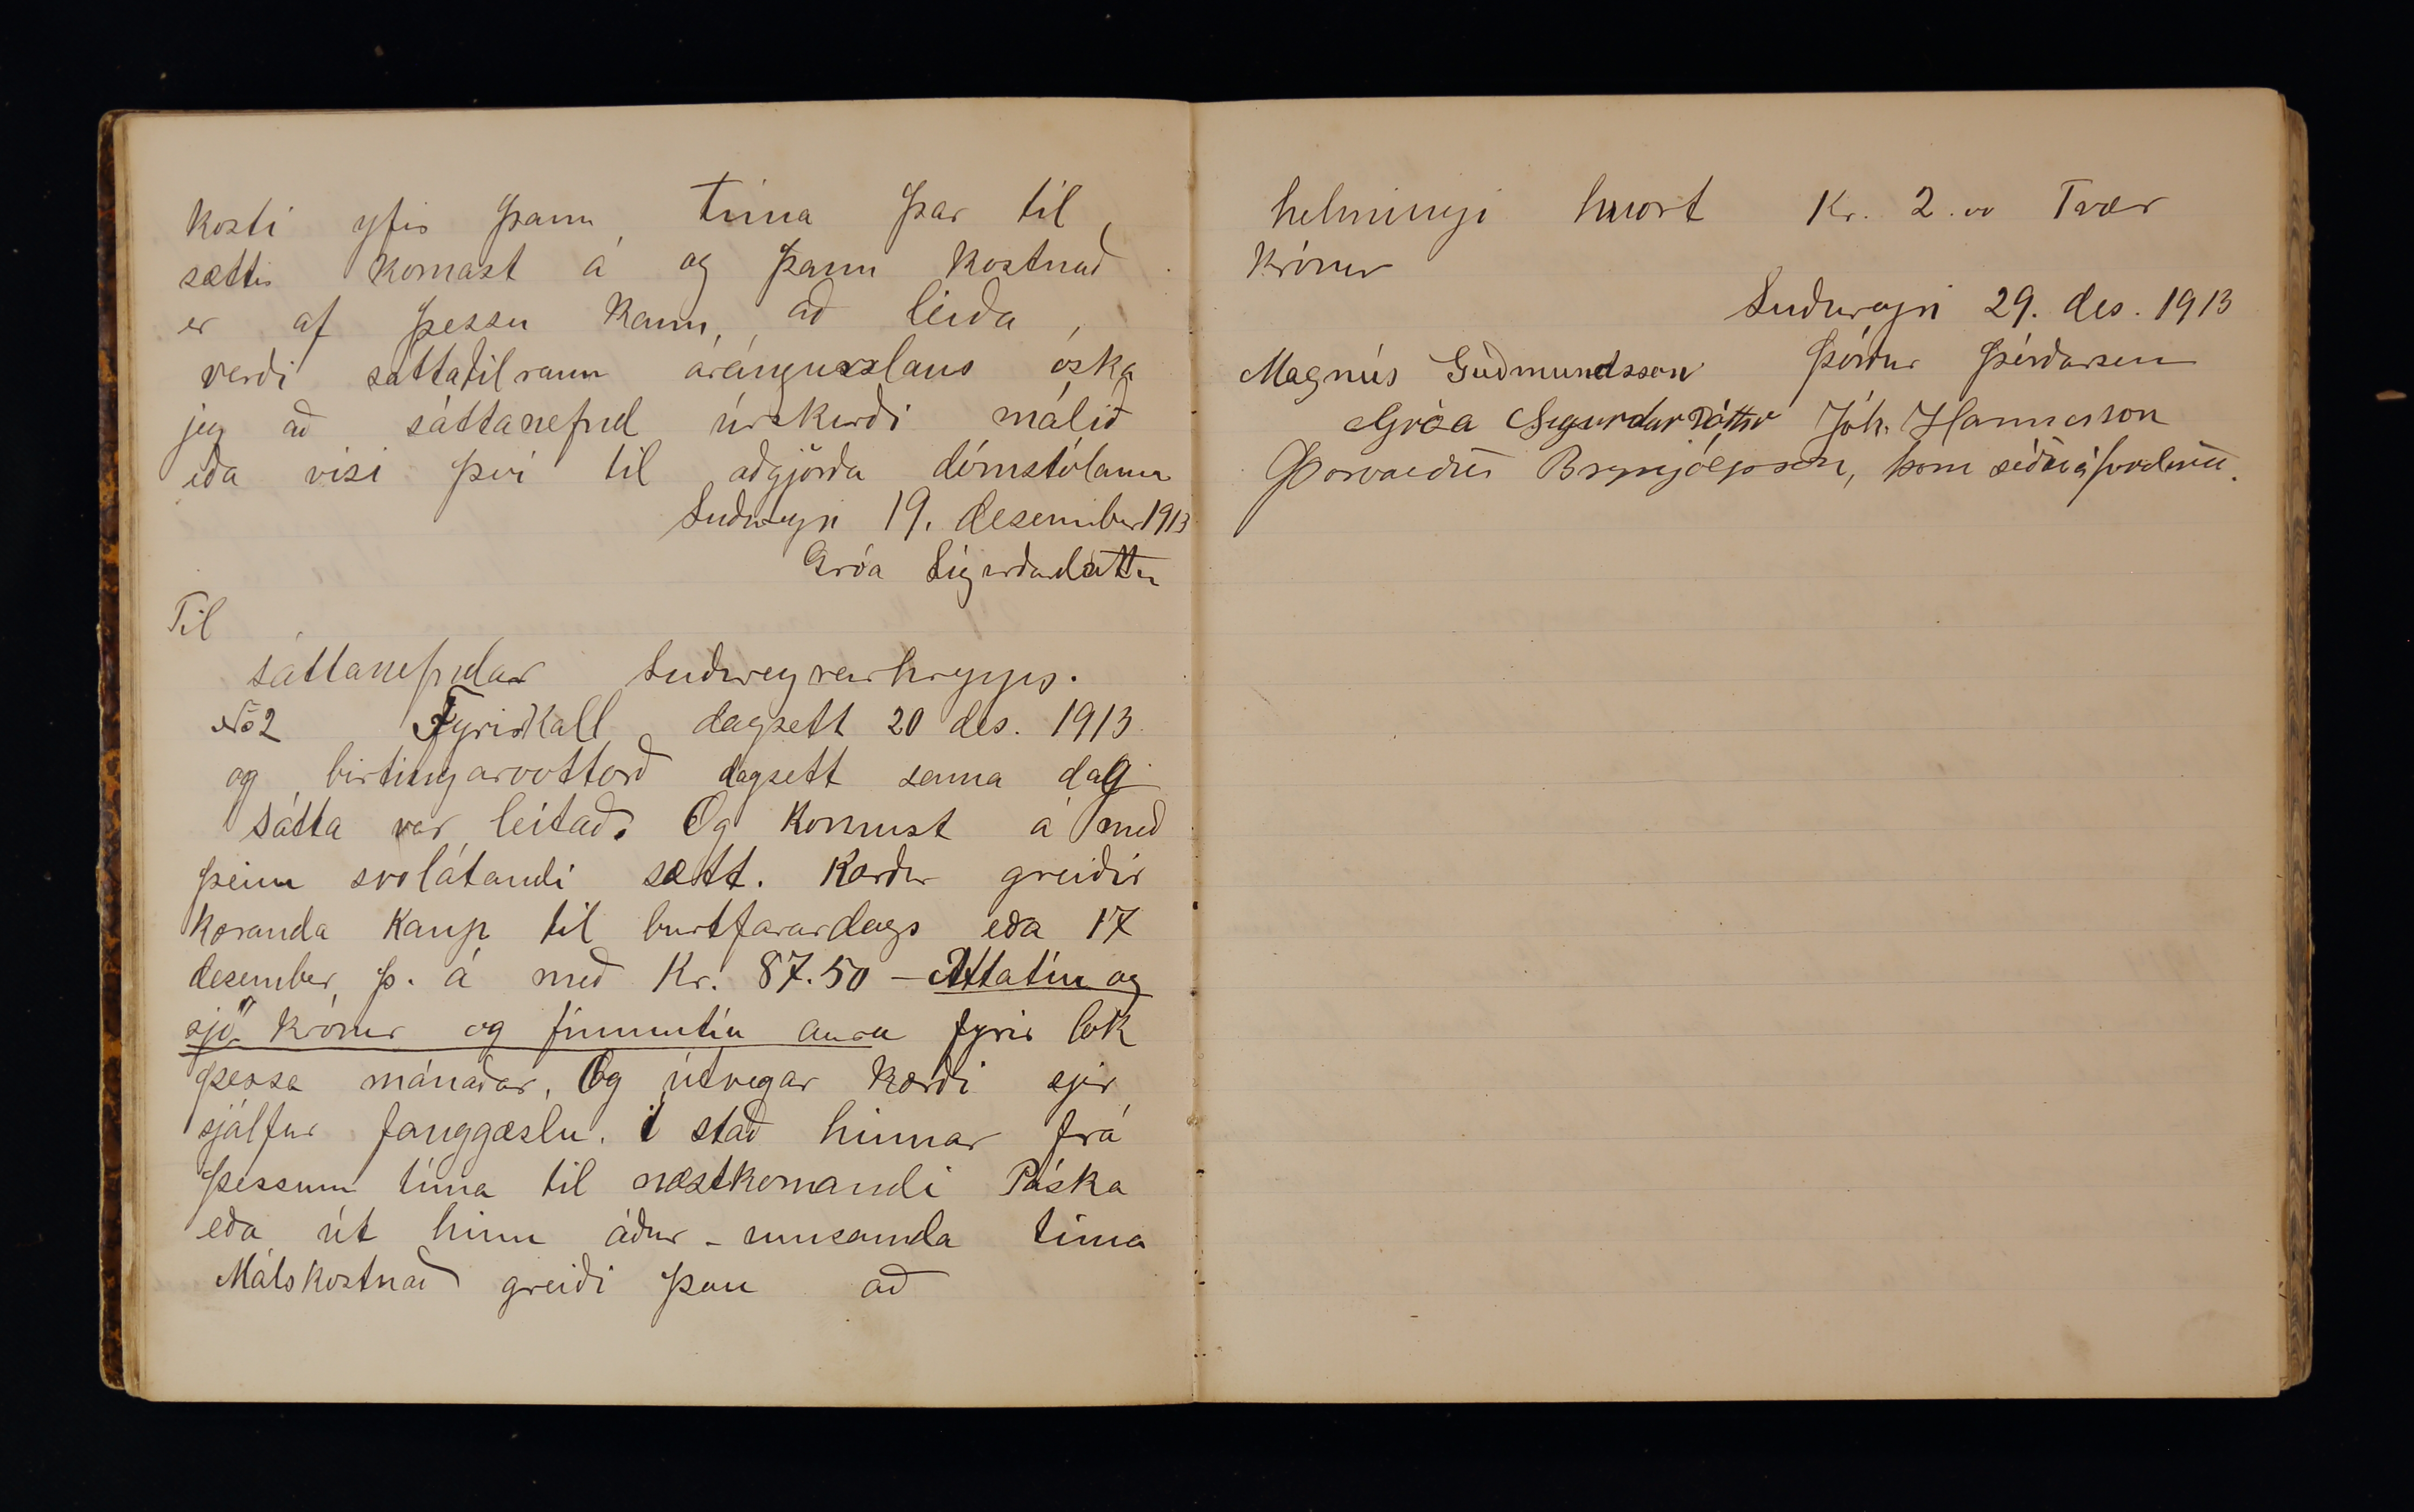 kosti yfir þann tíma þar til
sættir komast á og þann kostnað
er af þessu kann að leiða,
verði sáttatilraun árángurslaus óska
jeg að sáttanefnd úrskurði málið
eða vísi því til aðgjörða dómstólanna
Suðureyri 19. desember 1913
Gróa Sigurðardóttir
Til
sáttanefndar Suðureyrarhrepps.
No 2 Fyrirkall dagsett 20 des. 1913
og birtingarvottorð dagsett sama dag
Sátta var leitað. Og komust á með
þeim svolátandi sætt. Kærður greiðir
kæranda kaup til burtfarardags eða 17
desember þ. á með Kr. 87.50 – Áttatíu og
sjö krónur og fimmtíu aura fyrir lok
þessa mánaðar. Og útvegar kærði sjer
sjálfur fanggæslu. í stað hinnar frá
þessum tíma til næstkomandi Páska
eða út hinn áður-umsamda tíma
Málskostnað greiði þau að
helmingi hvort Kr. 2.00 Tvær
krónur
Suðureyri 29. des. 1913
Magnús Guðmundsson Þórður Þórðarson
Gróa Sigurdardóttir Jóh. Hannesson
Þorvaldur Brynjólfsson,